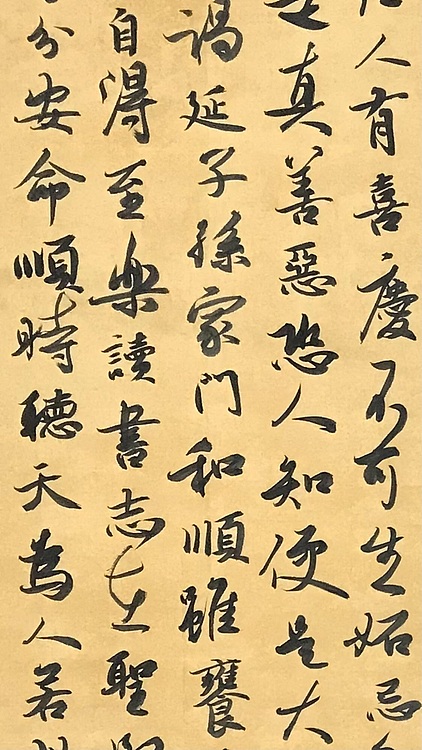 人有喜慶不可生妬忌
真善惡恐人知便是大
禍延子孫家門和順雖饔
自得至樂讀書志在聖
分安命順時聽天為人若